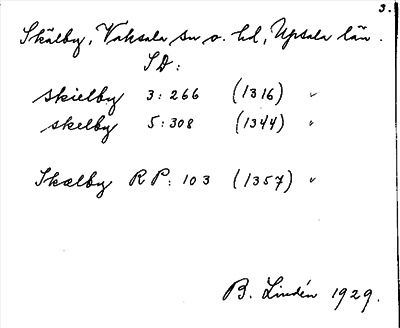 3.
Skälby, Vaksala sn o. hd, Upsala län.
SD:
skielby 3:266 (1316) "
skelby 5:308 (1344) "
Skælby RP: 103 (1357) "
B. Lindén 1929.